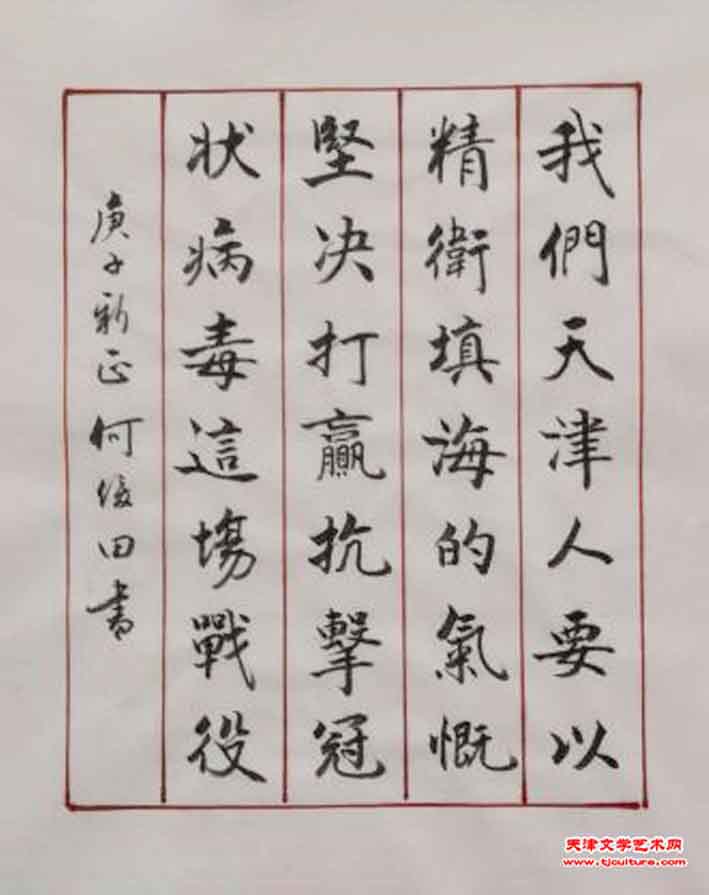 我們天津人要以
精衛填海的氣慨
堅决打贏抗擊冠
状病毒這場戰役
庚子新正何俊田書
天津文学艺术网
www.tjculture.com